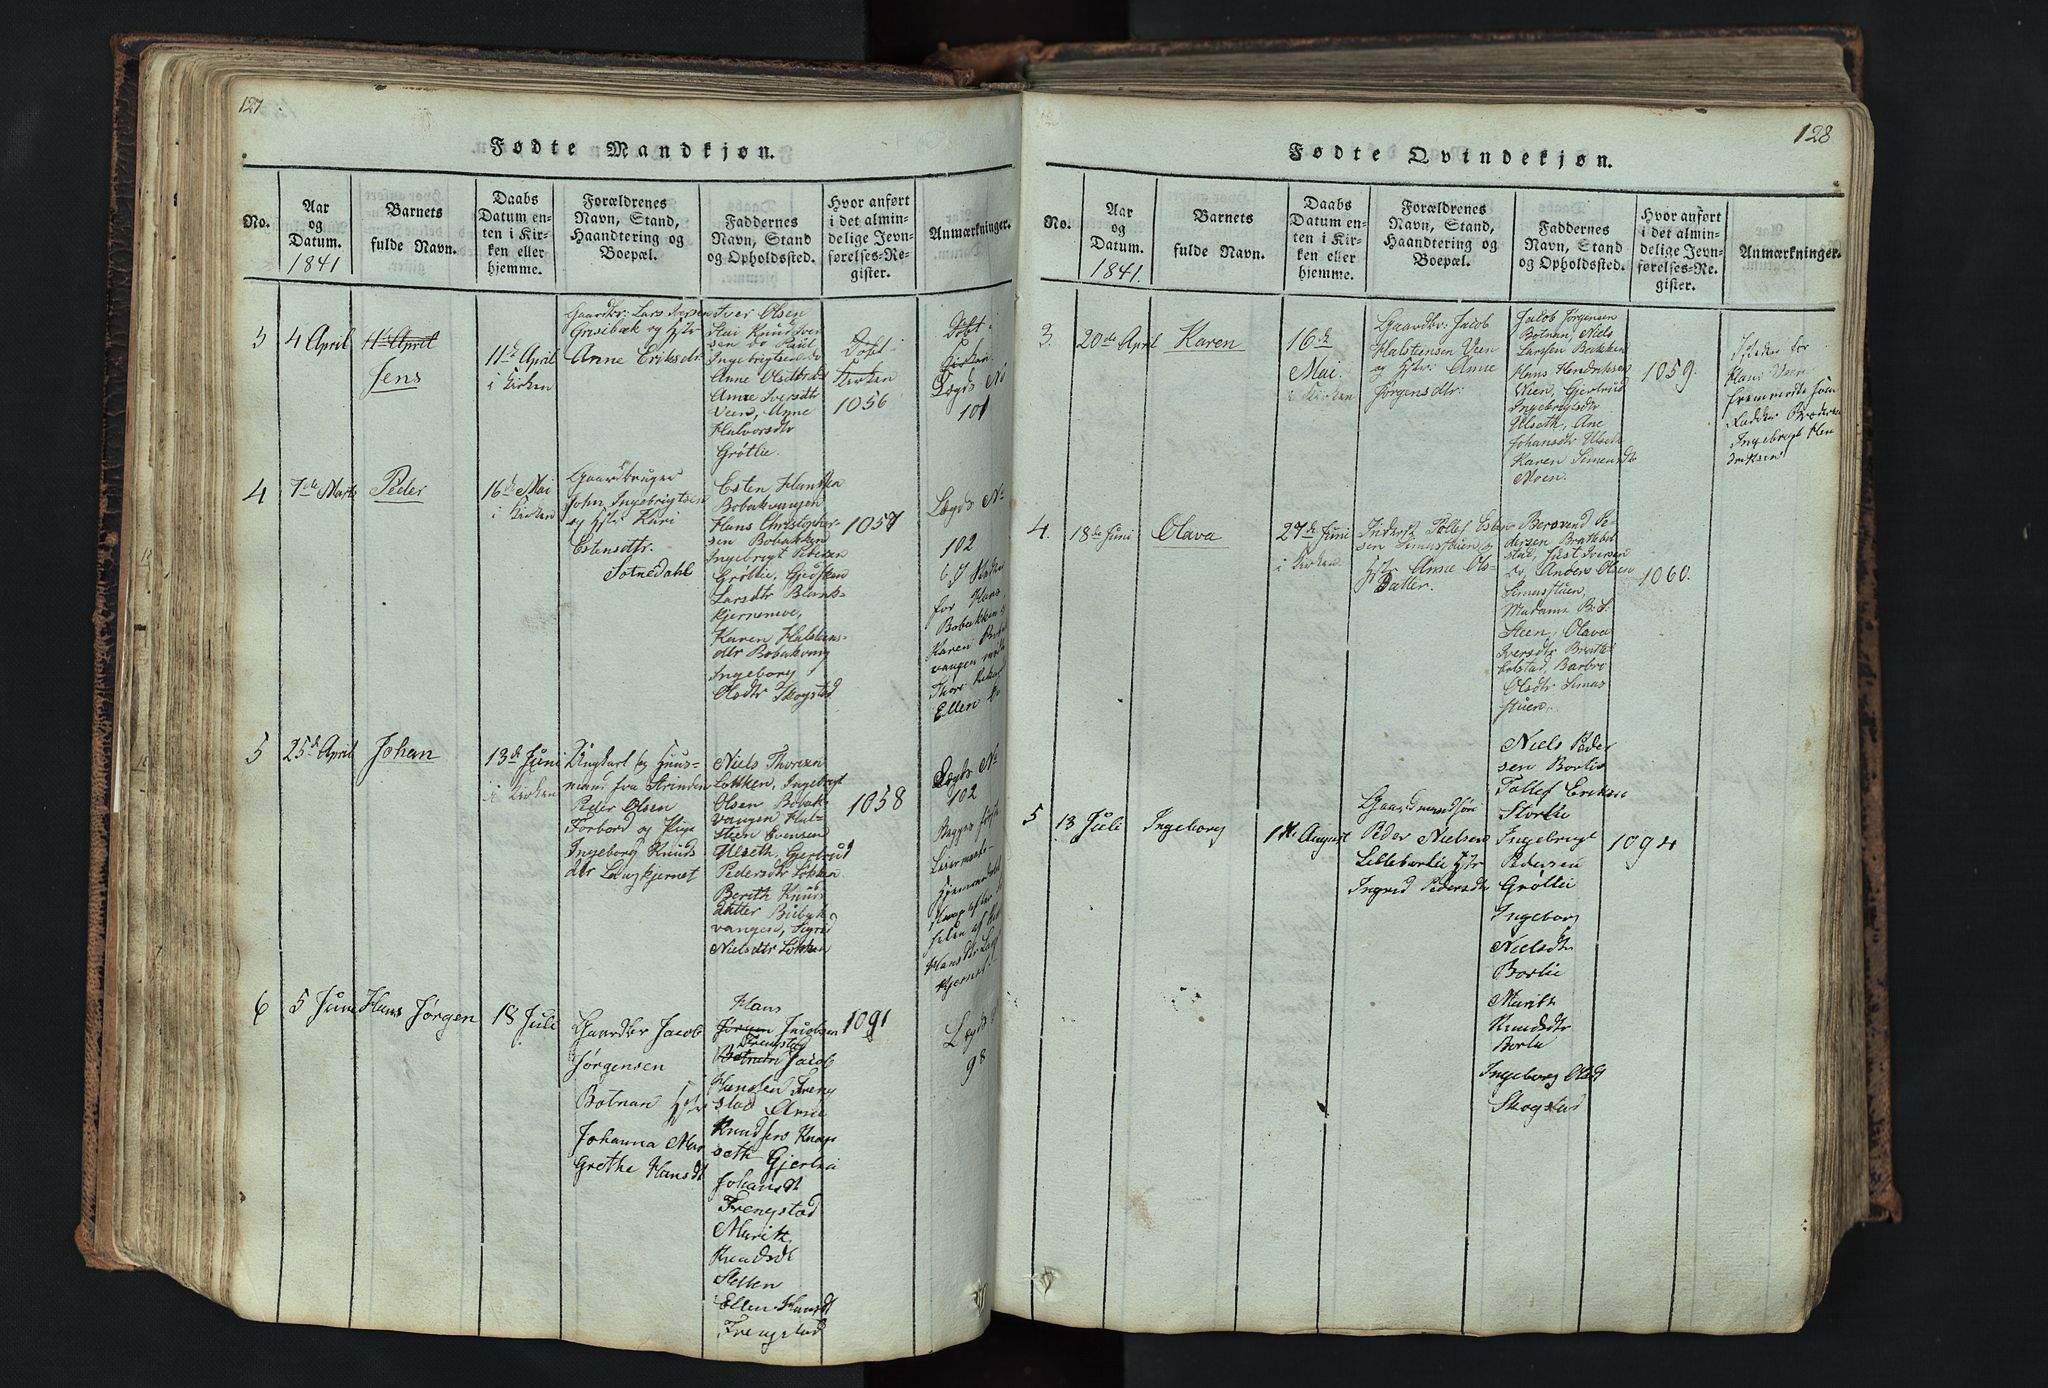 127
Fødte Mandkjøn.
No.
Aar
og
Datum.
1841
Barnets
fulde Navn.
Daabs
Datum en-
ten i Kir-
ken eller
hjemme.
Forældrenes
Navn, Stand,
Haandtering og
Boepæl.
Faddernes
Navn, Stand
og Opholdssted.
Hvor anført
i det almin-
delige Jevn-
førelses-Re-
gister.
Anmærkninger.
3
4 April
11te April
Jens
11te April
i Kirken
Gaardbr: Lars Iversen
Grisibæk og Hstr
Anne Eriksdtr
Iver Olsen
Knud Iver
sen do Paul
Ingebrigtsen do
Anne Olsdtr do
Anne Iversdtr
Veen, Anne
Halvorsdtr
Grøtlie.
Døbt
Kirken
1056
Døbt i
Kirken
Lægds No
101
4
7de Marts
Peder
16de Mai
i Kirken
Gaardbruger
John Ingebrigtsen
og Hstr Kari
Estensdtr.
Sotnedahl
Esten Hansen
Bobakvangen
Hans Christopher-
sen Bobakken
Ingebrigt Pedersen
Grøtlie, Gjertru
Larsdtr Blank-
kjernmoe,
Karen Halsteens-
dtr Bobakvang
Ingeborg
Olsdtr Skogstad
1057
Lægds No
102
for Hans
Bobakken og
Karen Bobak
vangen mødte
Thore
Ellen
5
25de April
Johan
13de Juni
i Kirken
Ungkarl og Huus-
mand fra Strinden
Peder Olsen
Forbord og Pige
Ingeborg Knuds
dtr Langkjernet
Niels Thoresen
Løkken, Ingebrigt
Olsen Bobak-
vangen Hal-
steen Evensen
Ulseth, Gjertrud
Pedersdtr Løkken
Berith Knuds
datter Bubak
vangen, Sigrid
Nielsdtr Løkken
1058
Lægds No
102
Begges første
Leiermaal
Hjemmedøbt
af
Hansdtr Lang
kjernet.
6
5 Juni
Hans Jørgen
18 Juli
Gaardbr Jacob
Jørgensen
Botnan Hstr
Johanna Mar
Grethe Hansdt
Hans
Jørgen Jacobsen
Frengstad
Botnan Jacob
Hanssen Freng
stad Arne
Knudsen Knap
seth Gjertru
Johansdt
Frengstad
Marith
Knudsdt
Stellen
Ellen Hansdt
Frengstad
1091
Lægds
98
128
Fødte Qvindekjøn.
No.
Aar
og
Datum.
1841.
Barnets
fulde Navn.
Daabs
Datum en-
ten i Kir-
ken eller
hjemme.
Forældrenes
Navn, Stand,
Haandtering og
Boepæl.
Faddernes
Navn, Stand
og Opholdssted.
Hvor anført
i det almin-
delige Jevn-
førelses-Re-
gister.
Anmærkninger.
3.
20de April
Karen
16de
Mai.
i Kirken
Gaardbr: Jacob
Halsteensen Veen
og Hstr: Anne
Jørgensdtr:
Jacob Jørgensen
Botnan, Niels
Larssen Bokken
Hans Hendriksen
Veen, Gjertrud
Ingebrigtsdtr
Ulseth, Ane
Johansdtr Ulseth
Karen Simensdtr
Moen.
1059.
Isteden for
Hans Veen
fremmødte som
Fadder Broderen
Ingebrigt Hen
driksen
4.
18de Juni
Olava
27de Juni
i Kirken
Inderst Tollef Esten
sen Simasstuen og
Hstr Anne Ols-
Datter.
Bersvend Pe-
dersen Bratbol
stad, Just Iversen
do, Anders Olsen
Simasstuen,
Madame B. S.
Steen, Olava
Iversdtr Bratbol
bolstad, Barbro
Olsdtr Simas
stuen.
1060.
5
13 Juli
Ingeborg
1te August
Gaardmand
Peder Nielsen
Lilleborlie Hstr
Ingrid Pedersdt
Niels Peder
sen Borlie
Tollef Eriksen
Storlie
Ingebrigt
Pedersen
Grøtlie
Ingeborg
Nielsdt
Borlie
Marith
Knudsdtr
Borlie
Ingeborg Olsdt
Skogstad
1094